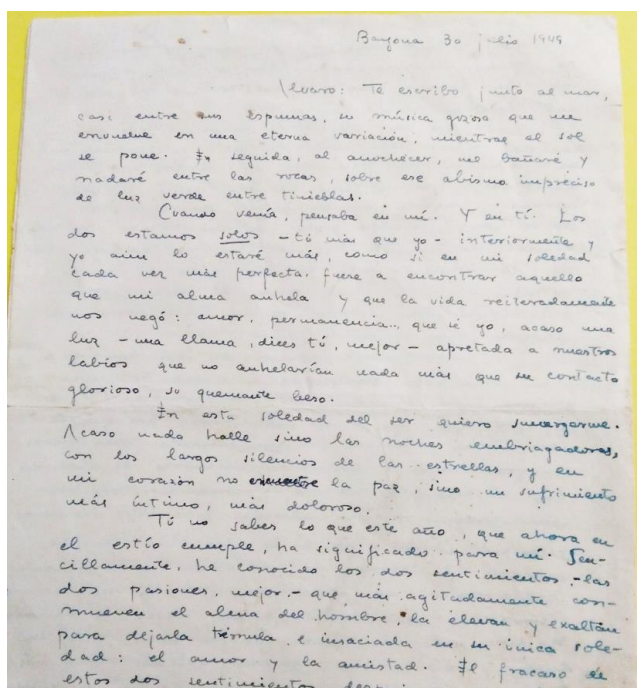 Bayona 30 julio 1949
Alvaro: Te escribo junto al mar,
casi entre sus espumas, su música gozosa que me
envuelve en una eterna variación, mientras el sol
se pone. En seguida, al anochecer, me bañaré y
nadaré entre las rocas, sobre ese abismo impreciso
de luz verde entre tinieblas.
Cuando venía, pensaba en mí. Y en tí. Los
dos estamos solos - tú más que yo - interiormente, y
yo aún lo estaré más, como si en mi soledad
cada vez más perfecta fuera a encontrar aquello
que mi alma anhela y que la vida reiteradamente
nos negó: amor, permanencia... que sé yo, acaso una
luz - una llama, dices tú, mejor - apretada a nuestros
labios que no anhelarían nada más que su contacto
glorioso, su quemante beso.
En esta soledad del ser quiero sumergirme.
Acaso nada halle sino las noches embriagadoras,
con los largos silencios de las estrellas, y en
mi corazón no encuentre la paz, sino un sufrimiento
más íntimo, más doloroso.
Tú no sabes lo que este año, que ahora en
el estío cumple, ha significado para mí. Sen-
cillamente, he conocido los dos sentimientos, - las
dos pasiones, mejor - que más agitadamente con-
mueven el alma del hombre, la elevan y exaltan
para dejarla trémula e insaciada en su única sole-
dad: el amor y la amistad. El fracaso de
estos dos sentimientos